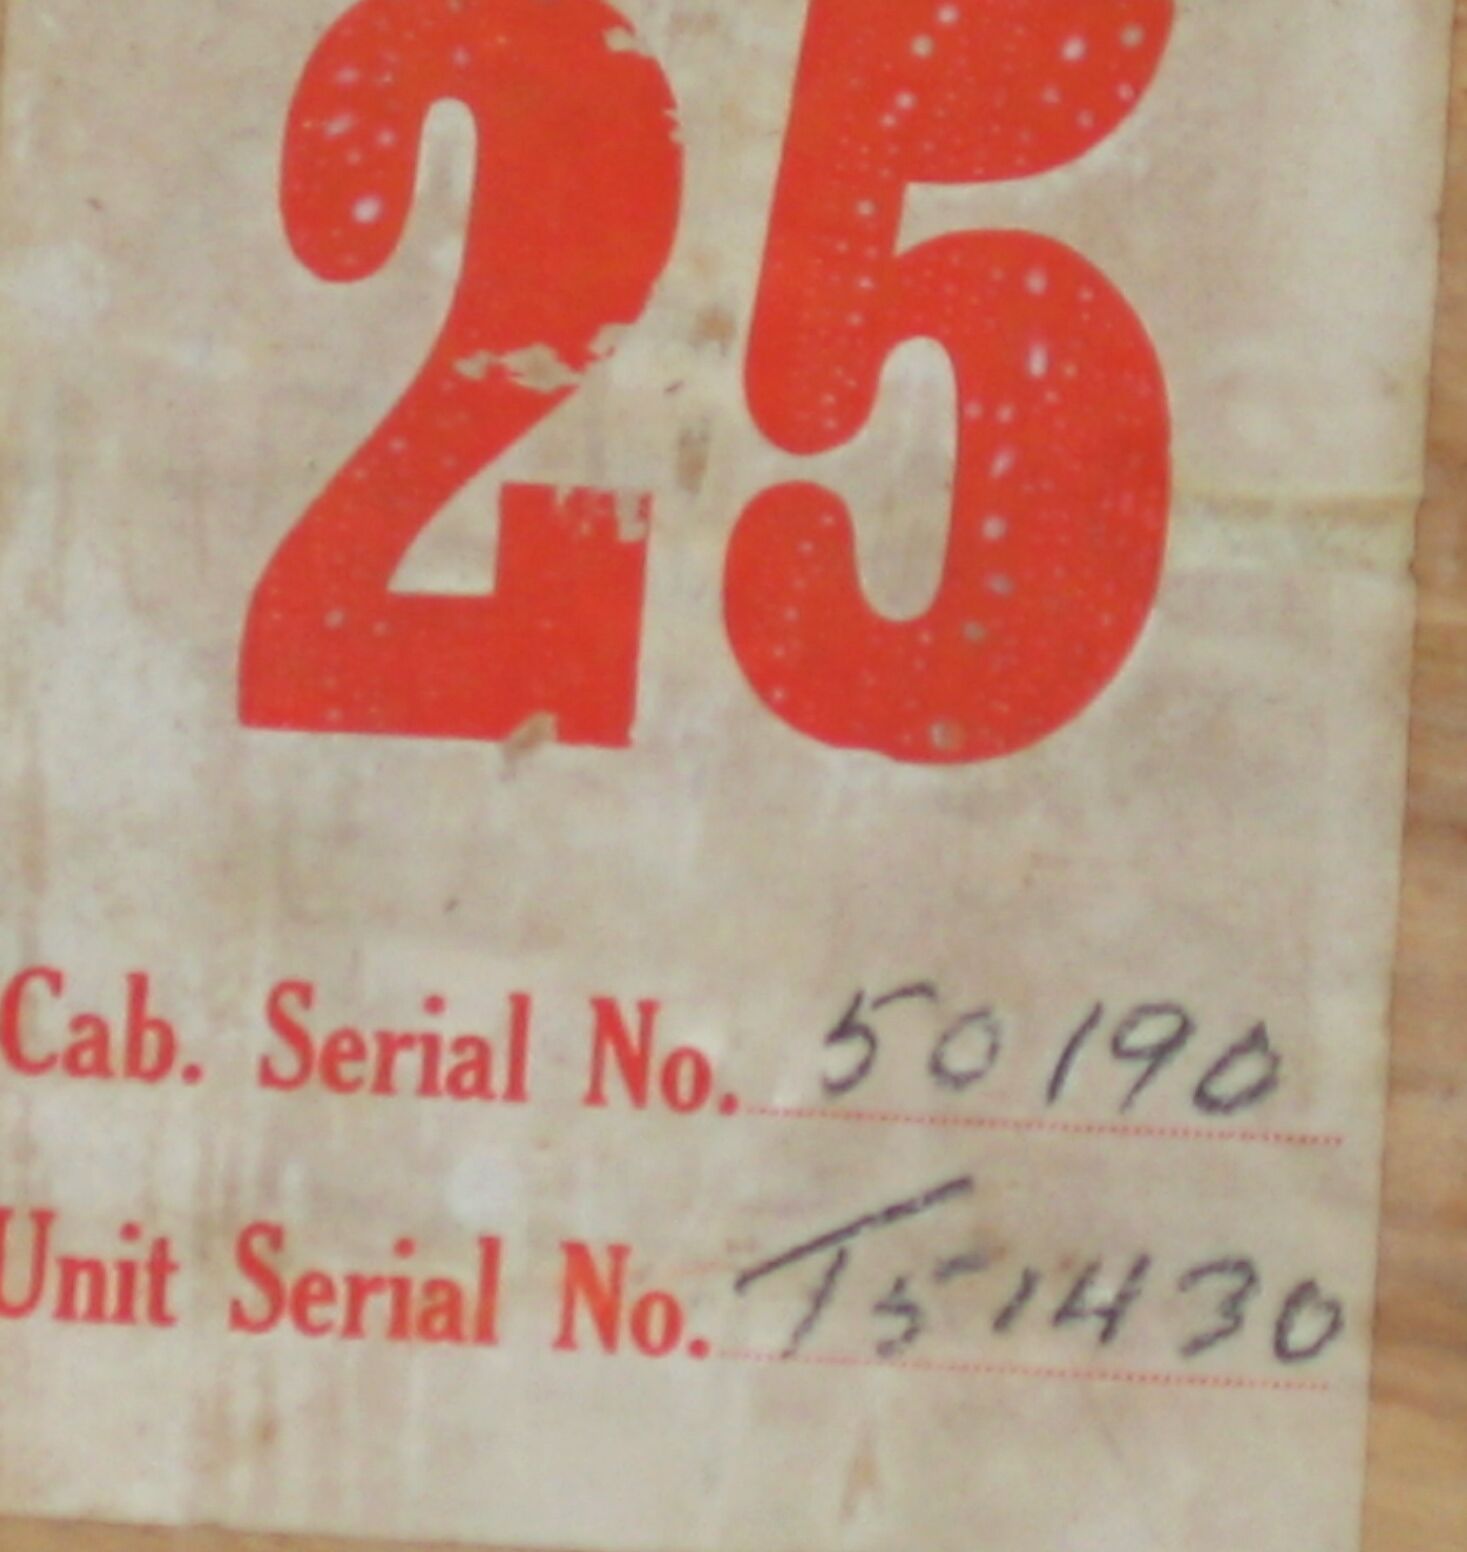 25
Cab. Serial No. 50190
Unit Serial No. T51430